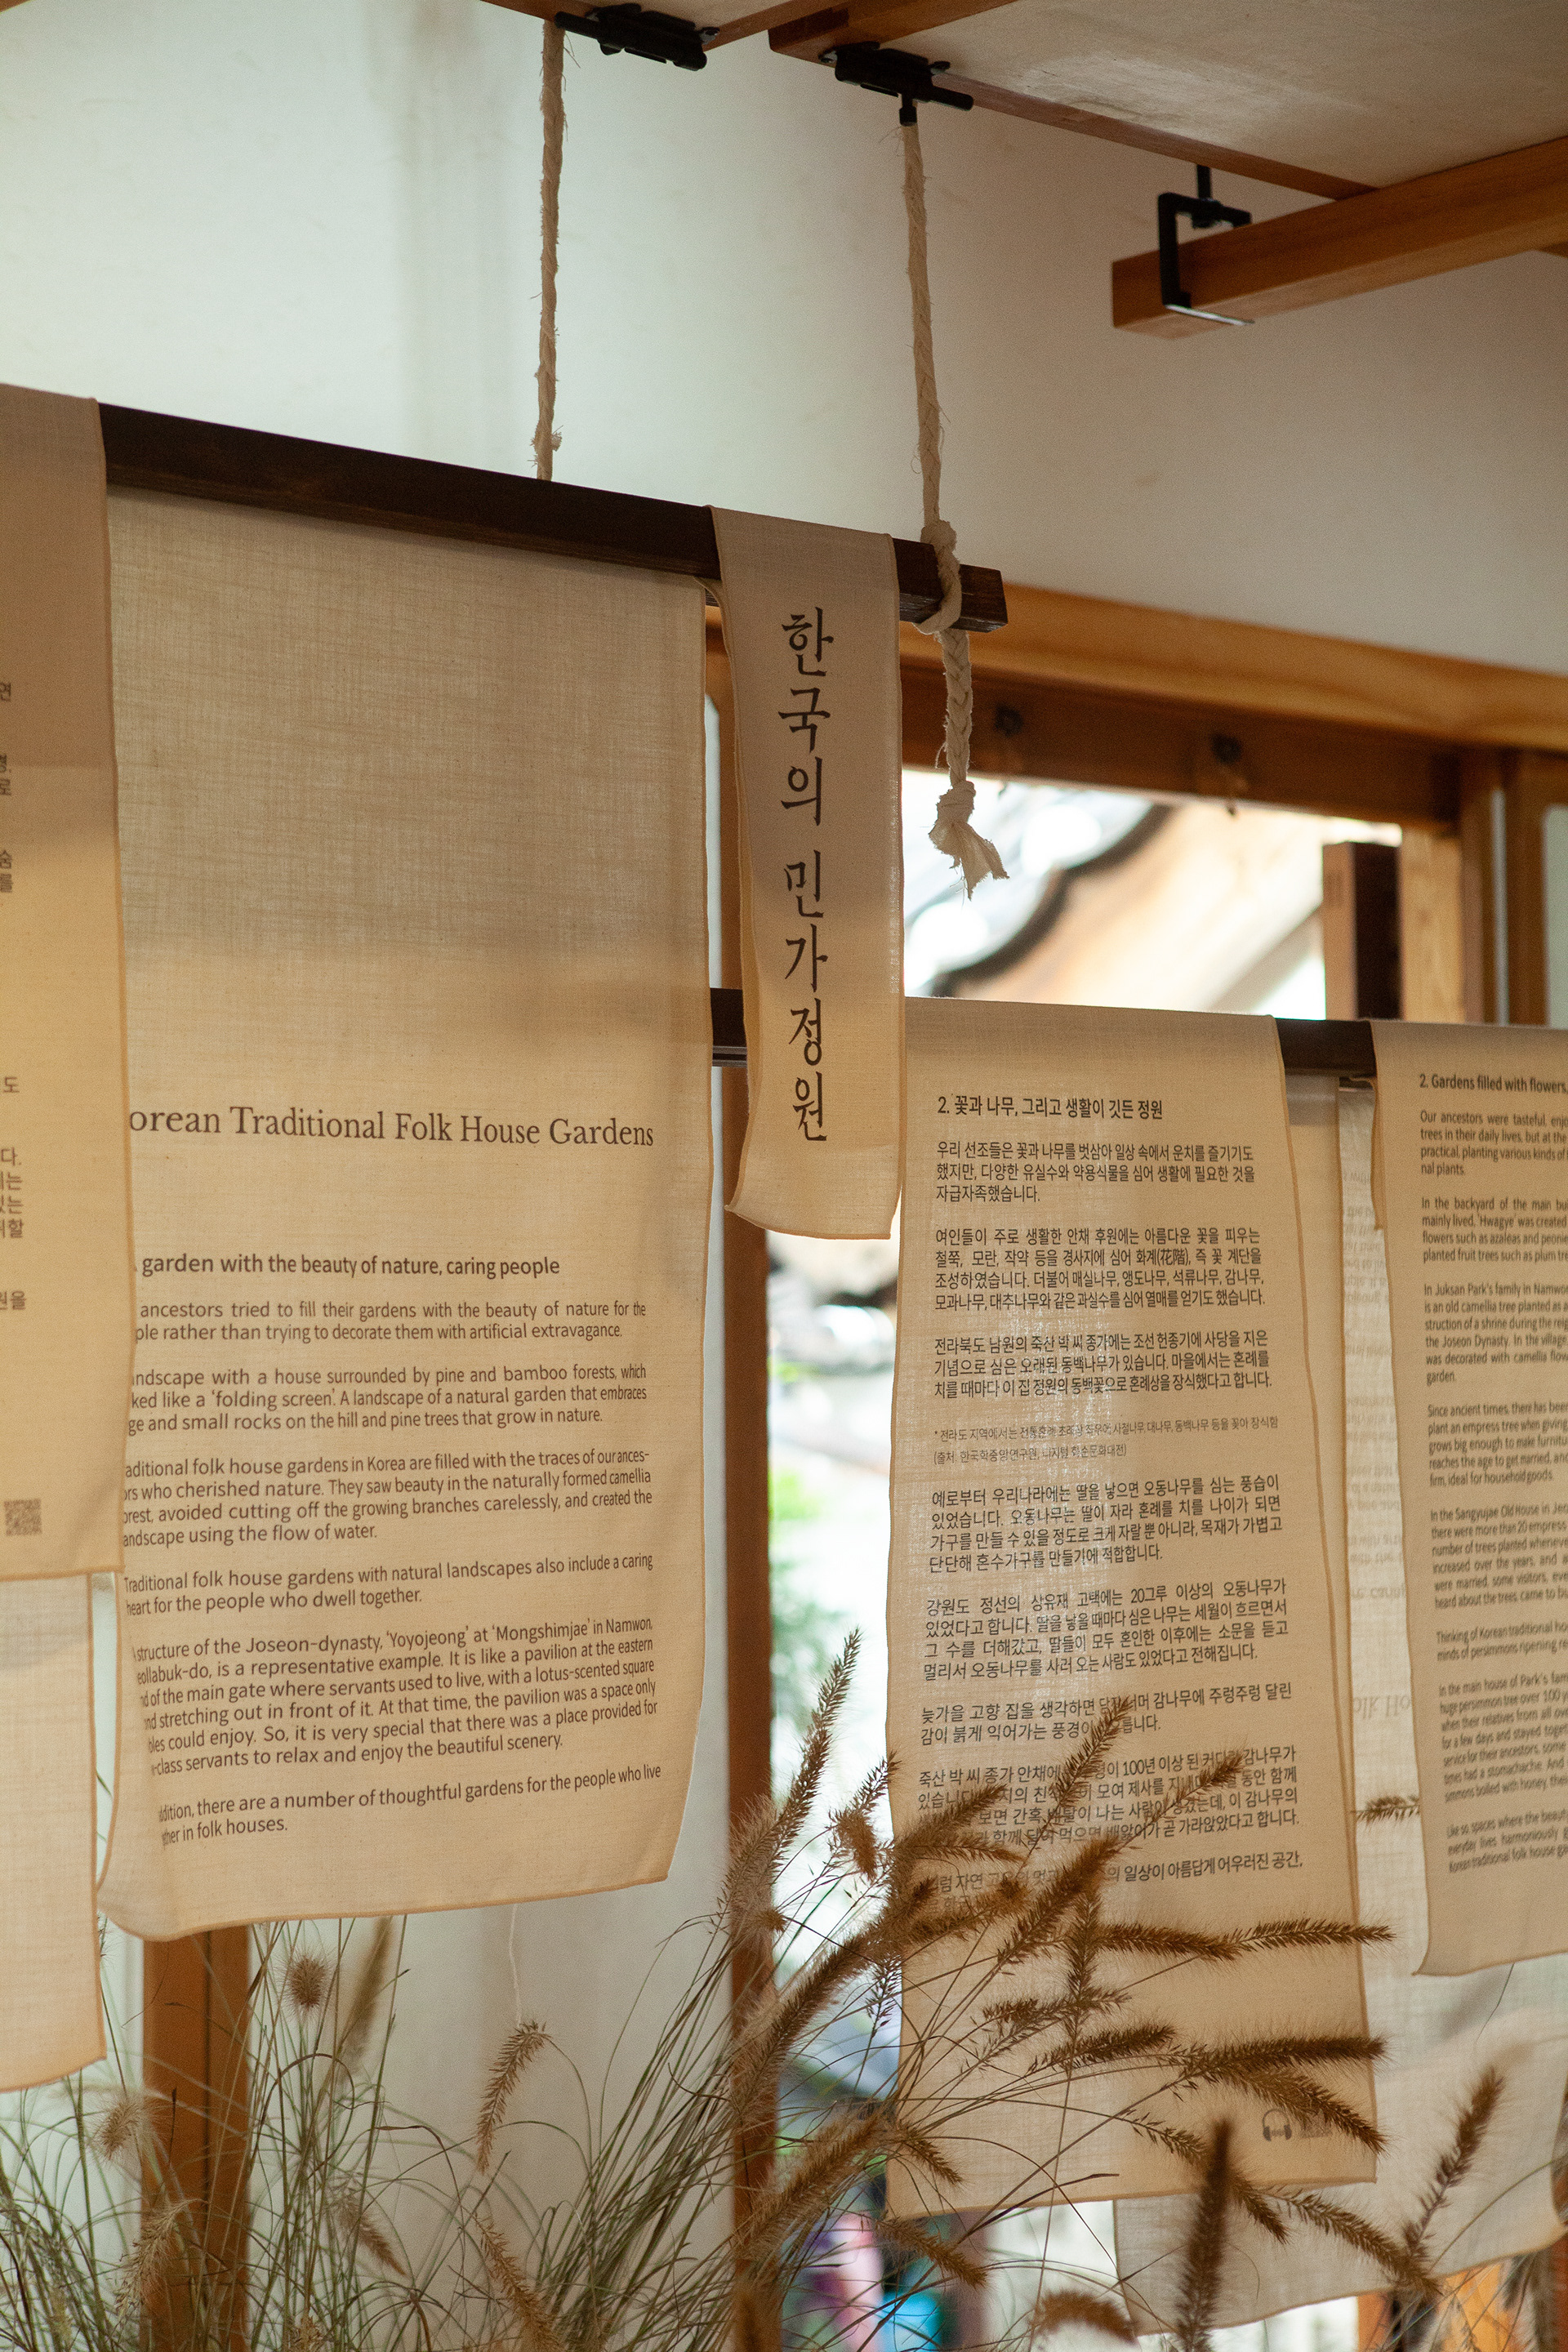 연
경,
로
숨
를
도
다.
는
있는
할
원을
orean Traditional Folk House Gardens
garden with the beauty of nature, caring people
ancestors tried to fill their gardens with the beauty of nature for the
ple rather than trying to decorate them with artificial extravagance.
ndscape with a house surrounded by pine and bamboo forests, which
ked like a 'folding screen'. A landscape of a natural garden that embraces
ge and small rocks on the hill and pine trees that grow in nature.
aditional folk house gardens in Korea are filled with the traces of our ances-
rs who cherished nature. They saw beauty in the naturally formed camellia
orest, avoided cutting off the growing branches carelessly, and created the
andscape using the flow of water.
Traditional folk house gardens with natural landscapes also include a caring
heart for the people who dwell together.
structure of the Joseon-dynasty, 'Yoyojeong' at 'Mongshimjae' in Namwon,
eollabuk-do, is a representative example. It is like a pavilion at the eastern
nd of the main gate where servants used to live, with a lotus-scented square
nd stretching out in front of it. At that time, the pavilion was a space only
bles could enjoy. So, it is very special that there was a place provided for
-class servants to relax and enjoy the beautiful scenery.
ddition, there are a number of thoughtful gardens for the people who live
ther in folk houses.
한국의 민가정원
2. 꽃과 나무, 그리고 생활이 깃든 정원
우리 선조들은 꽃과 나무를 벗삼아 일상 속에서 운치를 즐기기도
했지만, 다양한 유실수와 약용식물을 심어 생활에 필요한 것을
자급자족했습니다.
여인들이 주로 생활한 안채 후원에는 아름다운 꽃을 피우는
철쭉, 모란, 작약 등을 경사지에 심어 화계(花階), 즉 꽃 계단을
조성하였습니다. 더불어 매실나무, 앵도나무, 석류나무, 감나무,
모과나무, 대추나무와 같은 과실수를 심어 열매를 얻기도 했습니다.
전라북도 남원의 죽산 박 씨 종가에는 조선 헌종기에 사당을 지은
기념으로 심은 오래된 동백나무가 있습니다. 마을에서는 혼례를
치를 때마다 이 집 정원의 동백꽃으로 혼례상을 장식했다고 합니다.
* 전라도 지역에서는 전통혼례 초례상 사철나무, 대나무, 동백나무 등을 꽂아 장식함
(출처: 한국학중앙연구원, 디지털 화순문화대전)
예로부터 우리나라에는 딸을 낳으면 오동나무를 심는 풍습이
있었습니다. 오동나무는 딸이 자라 혼례를 치를 나이가 되면
가구를 만들 수 있을 정도로 크게 자랄 뿐 아니라, 목재가 가볍고
단단해 혼수가구를 만들기에 적합합니다.
강원도 정선의 상유재 고택에는 20그루 이상의 오동나무가
있었다고 합니다. 딸을 낳을 때마다 심은 나무는 세월이 흐르면서
그 수를 더해갔고, 딸들이 모두 혼인한 이후에는 소문을 듣고
멀리서 오동나무를 사러 오는 사람도 있었다고 전해집니다.
늦가을 고향 집을 생각하면 감나무에 주렁주렁 달린
감이 붉게 익어가는 풍경이
죽산 박 씨 종가 안채에 100년 이상 된 커다란 감나무가
있습니다. 모여 제사를 동안 함께
보면 간혹 배탈이 나는 사람이 생겼는데, 이 감나무의
함께 달여 먹으면 배앓이가 곧 가라앉았다고 합니다.
자연 일상이 아름답게 어우러진 공간,
2. Gardens filled with flowers,
Our ancestors were tasteful, enjo
trees in their daily lives, but at the
practical, planting various kinds of
nal plants.
In the backyard of the main bui
mainly lived, 'Hwagye' was created
flowers such as azaleas and peonie
planted fruit trees such as plum tre
In Juksan Park's family in Namwon
is an old camellia tree planted as a
struction of a shrine during the reig
the Joseon Dynasty. In the village,
was decorated with camellia flow
garden.
Since ancient times, there has been
plant an empress tree when giving
grows big enough to make furnitu
reaches the age to get married, and
firm, ideal for household goods.
In the Sangyujae Old House in Jeo
there were more than 20 empress
number of trees planted whenever
increased over the years, and a
were married, some visitors, eve
heard about the trees, came to bu
Thinking of Korean traditional ho
minds of persimmons ripening re
In the main house of Park's fam
huge persimmon tree over 100 y
when their relatives from all ove
for a few days and stayed toget
service for their ancestors, some
times had a stomachache. And
simmons boiled with honey, the
Like so, spaces where the beauty
everyday lives harmoniously
Korean traditional folk house ga